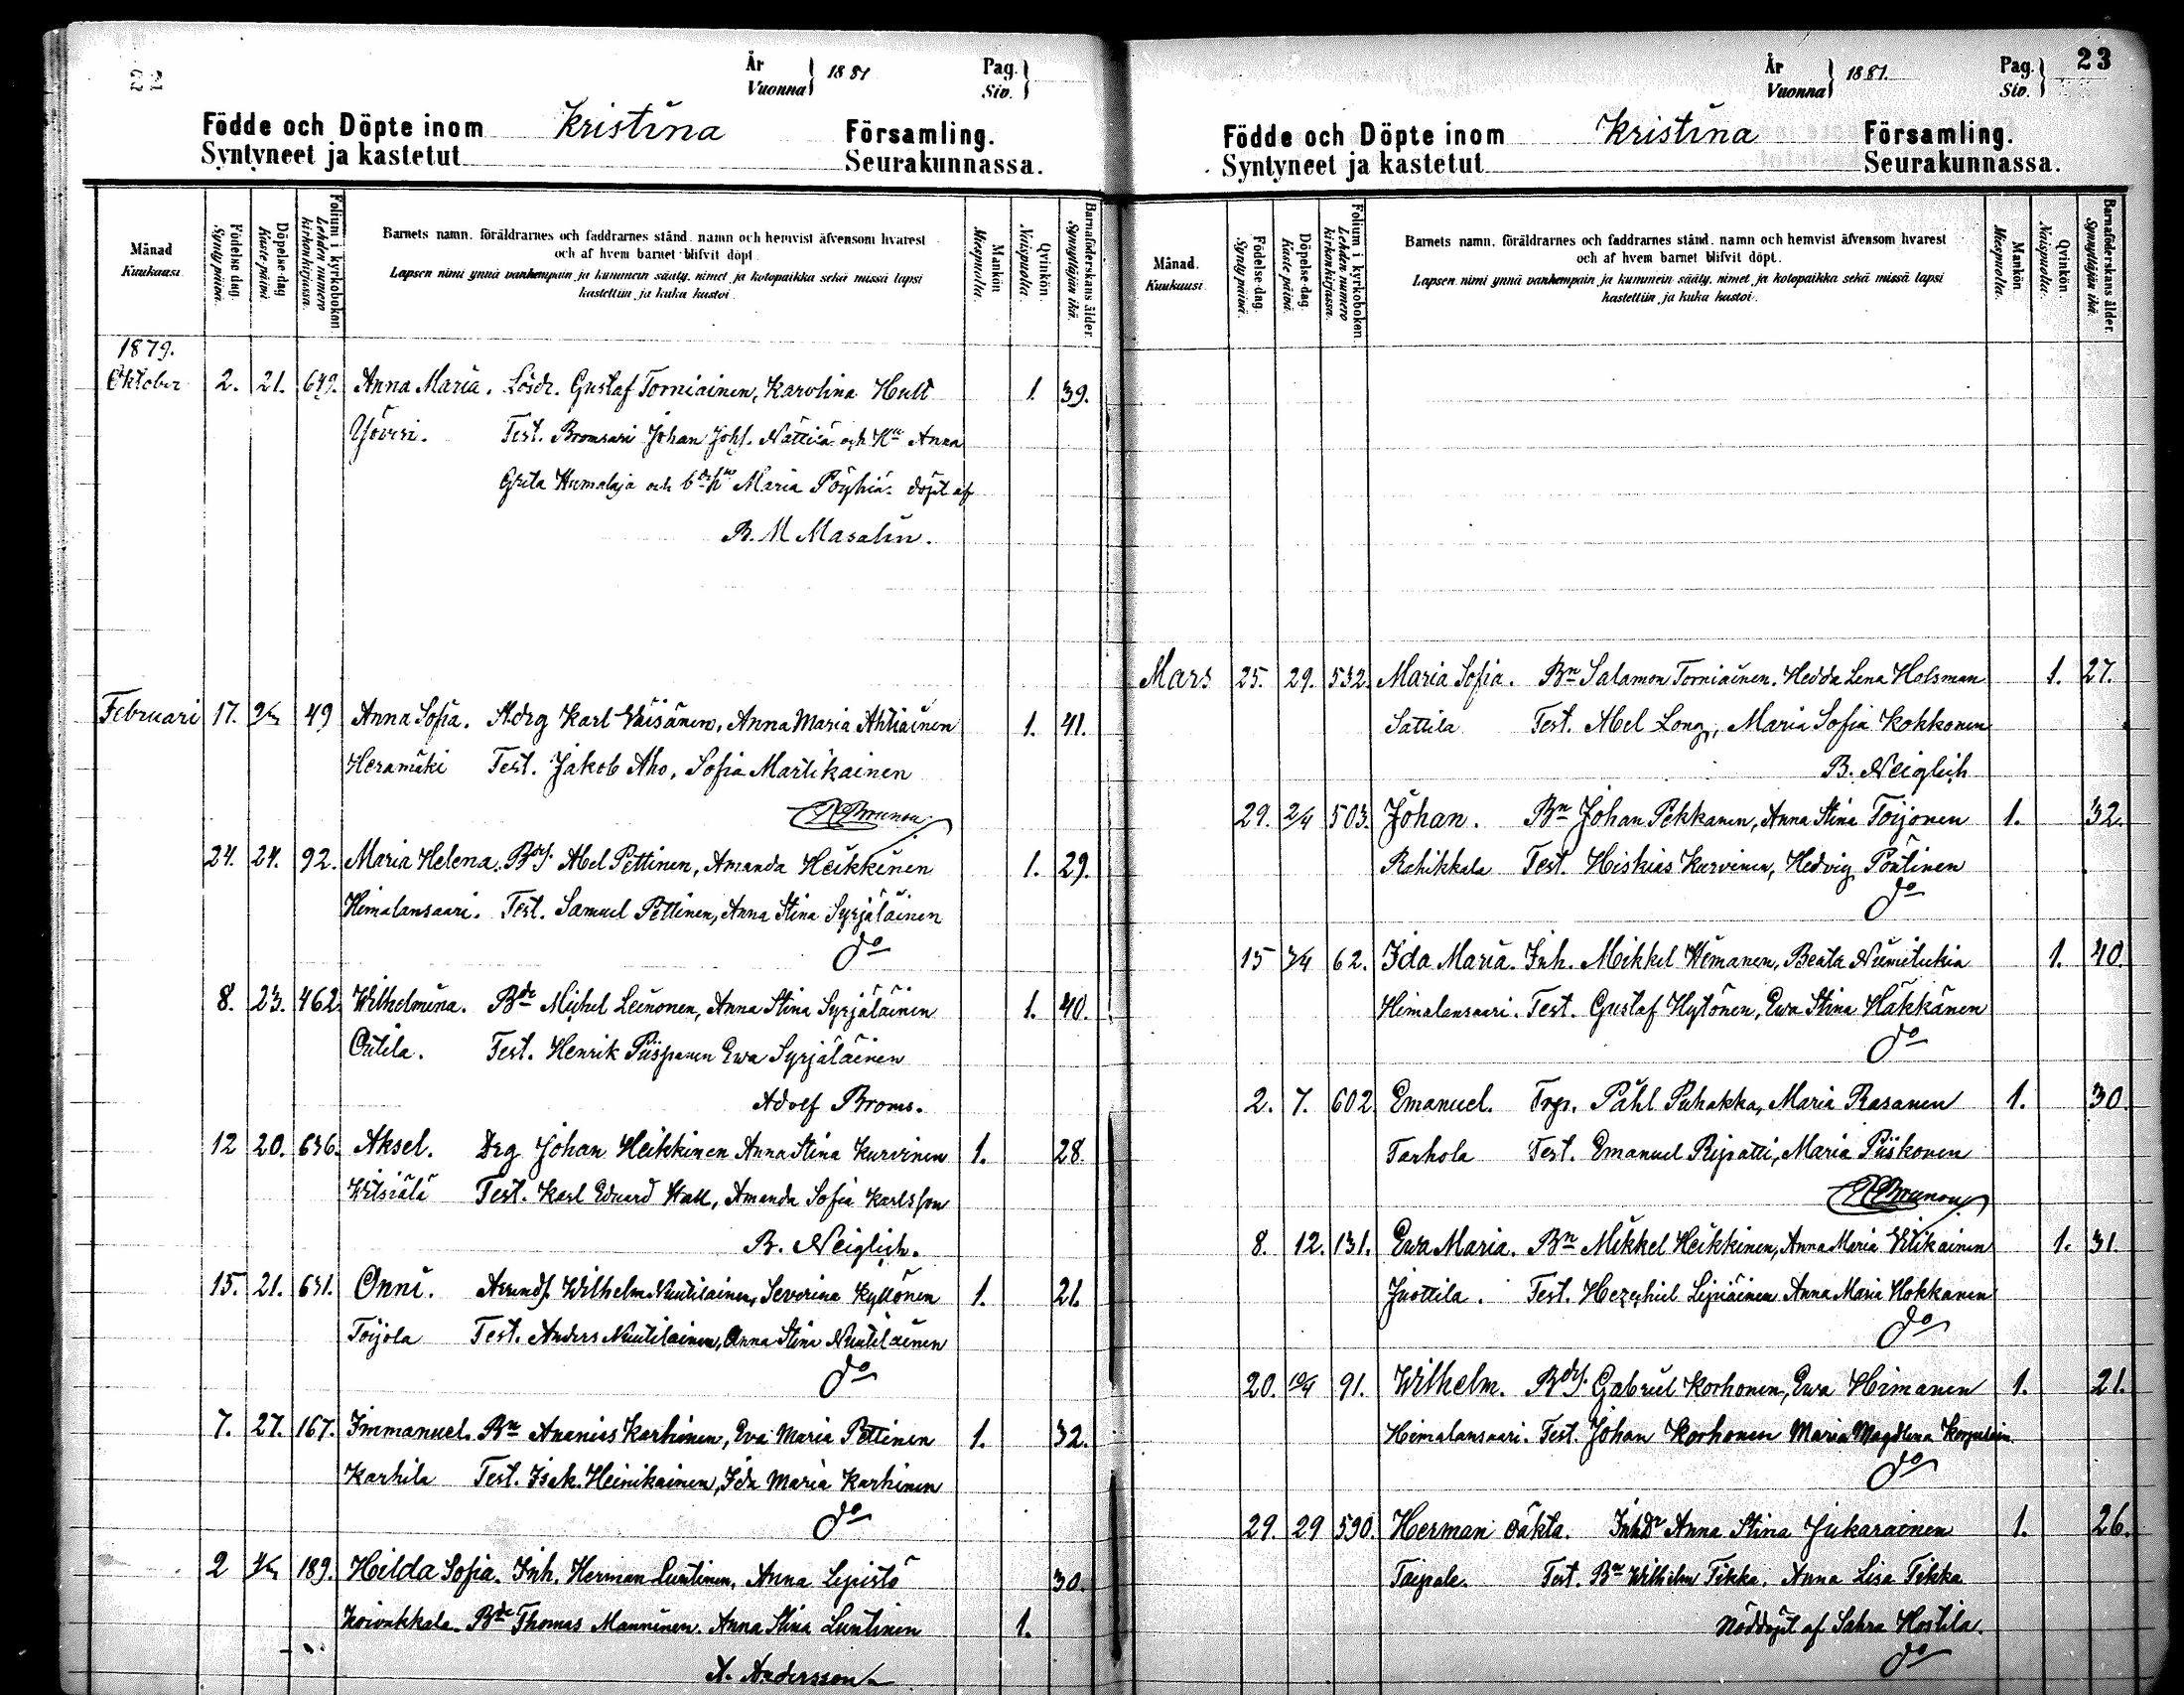 22
År
Vuonna } 1881
Pag.
Siv. }
Födde och Döpte inom Kristina Församling.
Syntyneet ja kastetut Seurakunnassa.
Månad
Kuukausi
Födelse-dag.
Synty päivä.
Döpelse-dag
Kaste päivä.
Folium i kyrkoboken.
Lehden numero
kirkonkirjassa.
Barnets namn, föräldrarnes och faddrarnes stånd, namn och hemvist äfvensom hvarest
och af hvem barnet blifvit döpt.
Lapsen nimi ynnä vanhempain ja kummein sääty, nimet ja kotopaikka sekä missä lapsi
kastettiin ja kuka kastoi.
Mankön.
Miespuolia.
Qvinkön.
Naispuolia.
Barnaföderskans ålder.
Synnyttäjän ikä.
1879.
Oktober 2. 21. 649. Anna Maria. Lösdr. Gustaf Torniainen, Karolina Hult 1. 39.
Test. Johan Johs. och Hu Anna
Greta Humalaja och Maria Pöyhiä. döpt af
B. M Masalin.
Februari 17. 49 Anna Sofia. Adrg Karl Väisänen, Anna Maria Ahtiainen 1. 41.
Heramäki Test. Jakob Aho, Sofia Martikainen
Brunou
24. 24. 92. Maria Helena. Bds. Abel Pettinen, Amanda Heikkinen 1. 29.
Himalansaari. Test. Samuel Pettinen, Anna Stina Syrjäläinen
do
8. 23. 462. Wilhelmina. Bde Michel Leinonen, Anna Stina Syrjäläinen 1. 40.
Outila. Test. Henrik Piispanen Ewa Syrjäläinen
Adolf Broms.
12 20. 636. Aksel. Drg Johan Heikkinen Anna Stina Kurvinen 1. 28.
Witsiälä Test. Karl Eduard Hall, Amanda Sofia Karlsson
B. Neiglich.
15. 21. 631. Onni. Arrends. Wilhelm Nuutilainen, Severina Kyllönen 1. 21.
Toijola Test. Anders Nuutilainen, Anna Stina Nuutilainen
do
7. 27. 167. Immanuel. Bn Ananias Karhinen, Eva Maria Pettinen 1. 32.
Karhila Test. Isak. Heinikainen, Ida Maria Karhinen
do
2 189. Hilda Sofia. Inh. Herman Luntinen, Anna Lepistö 30.
Koivakkala. Bde Thomas Manninen. Anna Stina Luntinen 1.
A. Andersson
23
År
Vuonna } 1881.
Pag.
Siv. }
Födde och Döpte inom Kristina Församling.
Syntyneet ja kastetut Seurakunnassa.
Månad.
Kuukausi
Födelse-dag.
Synty päivä.
Döpelse-dag
Kaste päivä.
Folium i kyrkoboken.
Lehden numero
kirkonkirjassa.
Barnets namn, föräldrarnes och faddrarnes stånd, namn och hemvist äfvensom hvarest
och af hvem barnet blifvit döpt.
Lapsen nimi ynnä vanhempain ja kummein sääty, nimet ja kotopaikka sekä missä lapsi
kastettiin ja kuka kastoi.
Mankön.
Miespuolia.
Qvinkön.
Naispuolia.
Barnaföderskans ålder.
Synnyttäjän ikä.
Mars 25. 29. 532. Maria Sofia. Bn Salamon Torniainen. Hedda Lena Holsman 1. 27.
Sattila Test. Abel Long, Maria Sofia Kohkonen
B. Neiglich
29. 2/4 503. Johan. Bn Johan Pekkanen, Anna Stina Toijonen 1. 32.
Rahikkala Test. Hiskias Kurvinen, Hedvig Pöntinen
do
15 3/4 62. Ida Maria. Inh. Mikkel Himanen, Beata Niinitukia 1. 40.
Himalansaari. Test. Gustaf Hytönen, Ewa Stina Häkkänen
do
2. 7. 602. Emanuel. Trp. Påhl Puhakka, Maria Rasanen 1. 30.
Tarhola Test. Emanuel Ripatti, Maria Piskonen
Brunou
8. 12. 131. Ewa Maria. Bn Mikkel Heikkinen, Anna Maria Vitikainen 1. 31.
Juottila. Test. Hezekiel Lipiäinen Anna Maria Hokkanen
do
20. 10/4 91. Wilhelm. Bds. Gabriel Korhonen, Ewa Himanen 1. 21.
Himalansaari. Test. Johan Korhonen Maria Magdlena
do
29. 29 590. Herman oäkta. Inhdr Anna Stina Jukarainen 1. 26.
Taipale. Test. Bn Wilhelm Tikka. Anna Lisa Tikka
Nöddöpt af Sahra Hostila.
do